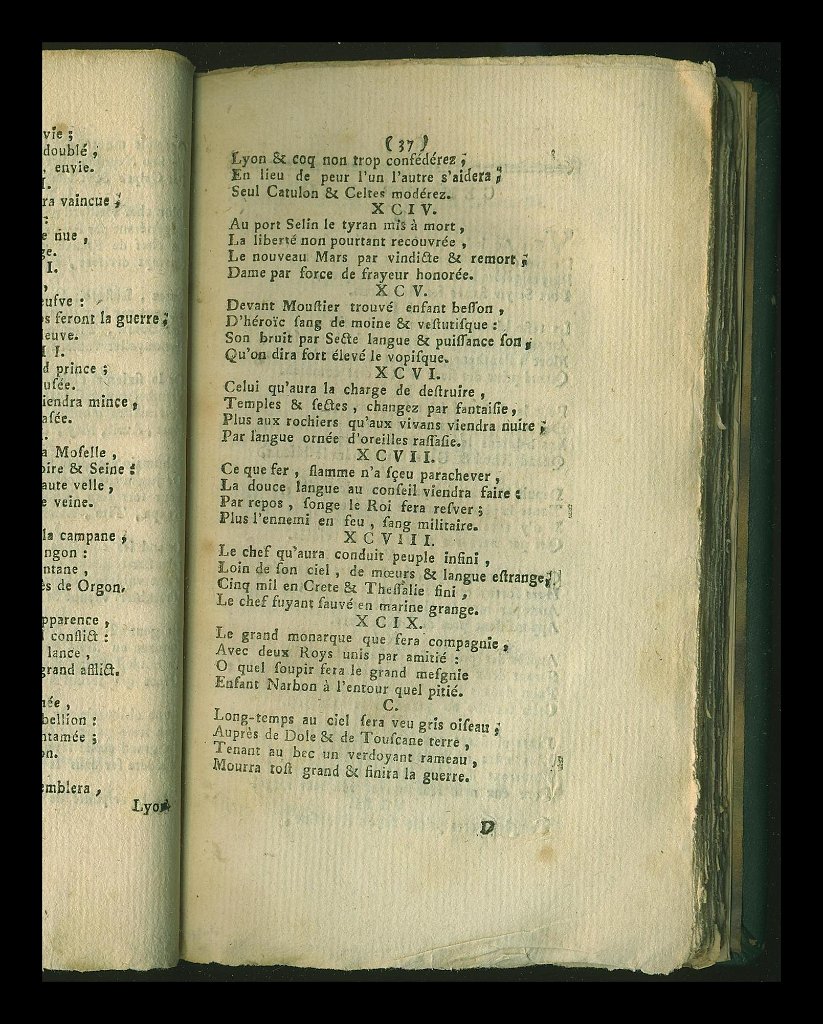 vie ;
doublé ;
, envie.
I.
ra vaincue ;
:
e nue ,
ge.
I.
,
eufve :
os feront la guerre ;
leuve.
I I.
d prince ;
usée.
iendra mince ,
asée.
.
a Moſelle ,
oire & Seine :
aute velle ,
e veine.
la campane ,
ngon :
ntane ,
ès de Orgon.
pparence ,
conflict :
lance ,
grand afflict.
née ,
bellion :
ntamée ;
on.
emblera ,
Lyon
( 37 )
Lyon & coq non trop confédérez ;
En lieu de peur l'un l'autre s'aidera ;
Seul Catulon & Celtes modérez.
X C I V.
Au port Selin le tyran mis à mort ,
La liberté non pourtant recouvrée ,
Le nouveau Mars par vindicte & remort ;
Dame par force de frayeur honorée.
X C V.
Devant Mouſtier trouvé enfant beſſon ,
D'héroïc ſang de moine & veſtutiſque :
Son bruit par Secte langue & puiſſance ſon ,
Qu'on dira fort élevé le vopiſque.
X C V I.
Celui qu'aura la charge de deſtruire ,
Temples & ſectes , changez par fantaiſie ,
Plus aux rochiers qu'aux vivans viendra nuire ;
Par langue ornée d'oreilles raſſaſie.
X C V I I.
Ce que fer , flamme n'a ſçeu parachever ,
La douce langue au conſeil viendra faire :
Par repos , ſonge le Roi fera reſver ;
Plus l'ennemi en feu , ſang militaire.
X C V I I I.
Le chef qu'aura conduit peuple infini ,
Loin de ſon ciel , de mœurs & langue eſtrange ;
Cinq mil en Crete & Theſſalie fini ,
Le chef fuyant ſauvé en marine grange.
X C I X.
Le grand monarque que fera compagnie ,
Avec deux Roys unis par amitié :
O quel ſoupir fera le grand meſgnie
Enfant Narbon à l'entour quel pitié.
C.
Long-temps au ciel ſera veu gris oiſeau ;
Auprès de Dole & de Touſcane terre ,
Tenant au bec un verdoyant rameau ,
Mourra toſt grand & finira la guerre.
D